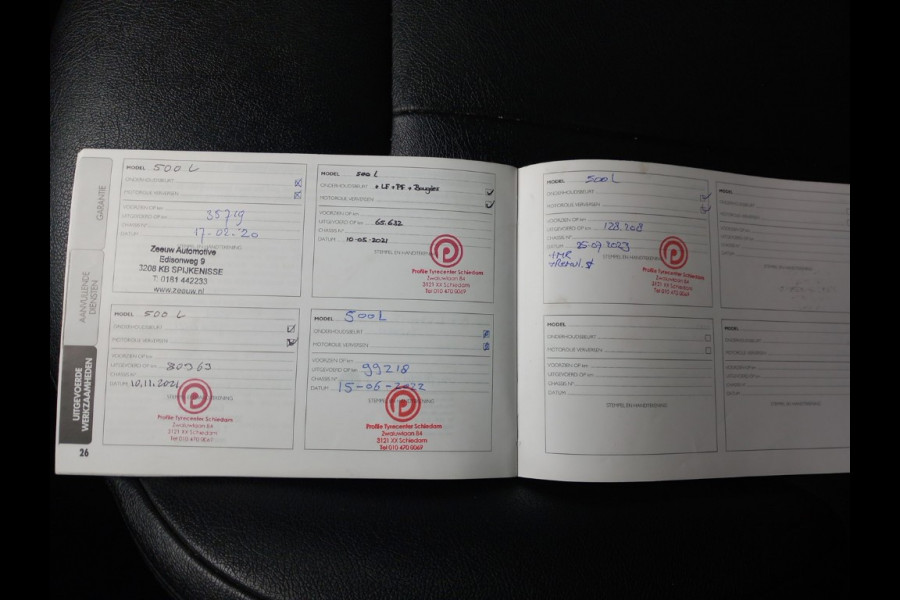 GARANTIE
AANVULLENDE
DIENSTEN
UITGEVOERDE
WERKZAAMHEDEN
26
MODEL 500 L
ONDERHOUDSBEURT
MOTOROLIE VERVERSEN
VOORZIEN OP km
UITGEVOERD OP km 35719
CHASSIS N°
DATUM 17-02-20
STEMPEL EN HANDTEKENING
Zeeuw Automotive
Edisonweg 9
3208 KB SPIJKENISSE
T: 0181 442233
www.zeeuw.nl
MODEL 500 L
ONDERHOUDSBEURT + LF + PF + Bougies
MOTOROLIE VERVERSEN
VOORZIEN OP km
UITGEVOERD OP km 65.632
CHASSIS N°
DATUM 10-05-2021
STEMPEL EN HANDTEKENING
Profile Tyrecenter Schiedam
Zwaluwlaan 84
3121 XX Schiedam
Tel 010 470 0069
MODEL 500 L
ONDERHOUDSBEURT
MOTOROLIE VERVERSEN
VOORZIEN OP km
UITGEVOERD OP km 80963
CHASSIS N°
DATUM 10.11.2021
STEMPEL EN HANDTEKENING
Profile Tyrecenter Schiedam
Zwaluwlaan 84
3121 XX Schiedam
Tel 010 470 0069
MODEL 500L
ONDERHOUDSBEURT
MOTOROLIE VERVERSEN
VOORZIEN OP km
UITGEVOERD OP km 99218
CHASSIS N°
DATUM 15-06-2022
STEMPEL EN HANDTEKENING
Profile Tyrecenter Schiedam
Zwaluwlaan 84
3121 XX Schiedam
Tel 010 470 0069
MODEL 500L
ONDERHOUDSBEURT
MOTOROLIE VERVERSEN
VOORZIEN OP km
UITGEVOERD OP km 128.208
CHASSIS N°
DATUM 25-07-2023
STEMPEL EN HANDTEKENING
Profile Tyrecenter Schiedam
Zwaluwlaan 84
3121 XX Schiedam
Tel 010 470 0069
MODEL
ONDERHOUDSBEURT
MOTOROLIE VERVERSEN
VOORZIEN OP km
UITGEVOERD OP km
CHASSIS N°
DATUM
MODEL
ONDERHOUDSBEURT
MOTOROLIE VERVERSEN
VOORZIEN OP km
UITGEVOERD OP km
CHASSIS N°
DATUM
STEMPEL EN HANDTEKENING
MODEL
ONDERHOUDSBEURT
MOTOROLIE VERVERSEN
VOORZIEN OP km
UITGEVOERD OP km
CHASSIS N°
DATUM